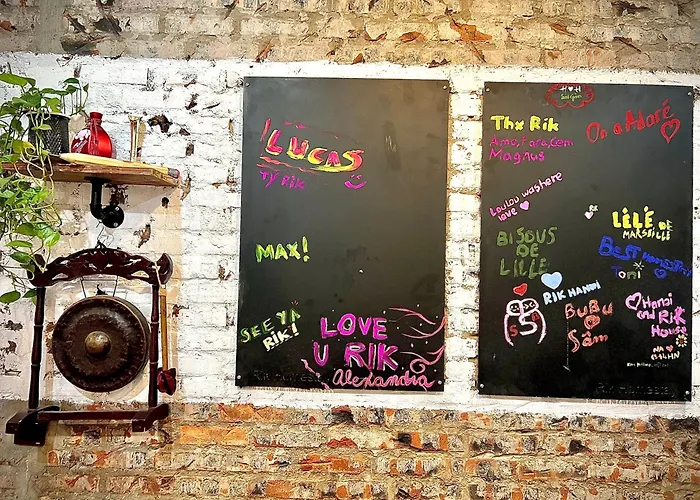 LUCAS
TY RiK
MAX!
SEE YA
RiK!
LOVE
U RIK
Alexandra
H♥H
Thx Rik
Amos, Fara, Cem
Magnus
On a Adoré
Loulou was here
love
RK
LiLÉ DE
MARSEILLE
BISOUS
DE
LILLE
BEST
Tomi
RIK HANOI
BUBU
Sâm
Hanoi
and RiK
House